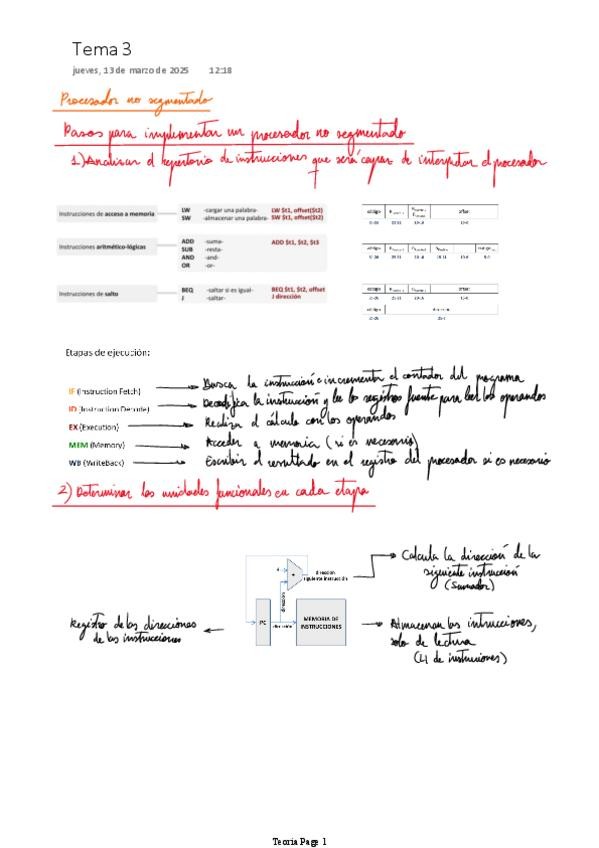 Tema 3
jueves, 13 de marzo de 2025 12:18
Procesador no segmentado
Pasos para implementar un procesador no segmentado
1) Analizar el repertorio de instrucciones que será capaz de interpretar el procesador
Instrucciones de acceso a memoria
LW -cargar una palabra- LW $t1, offset($t2)
SW -almacenar una palabra- SW $t1, offset($t2)
Instrucciones aritmético-lógicas
ADD -suma- ADD $t1, $t2, $t3
SUB -resta-
AND -and-
OR -or-
Instrucciones de salto
BEQ -saltar si es igual- BEQ $t1, $t2, offset
J -saltar- J dirección
Etapas de ejecución:
IF (Instruction Fetch) Busca la instrucción e incrementa el contador del programa
ID (Instruction Decode) Decodifica la instrucción y lee los registros fuente para leer los operandos
EX (Execution) Realiza el cálculo con los operandos
MEM (Memory) Acceder a memoria (si es necesario)
WB (WriteBack) Escribir el resultado en el registro del procesador si es necesario
2) Determinar las unidades funcionales en cada etapa
4
+
dirección
siguiente instrucción
dirección
PC
dirección
MEMORIA DE
INSTRUCCIONES
Calcula la dirección de la
siguiente instrucción
(Sumador)
Registro de las direcciones
de las instrucciones
Almacenan las intrucciones,
solo de lectura
(L1 de instruciones)
Teoria Page 1